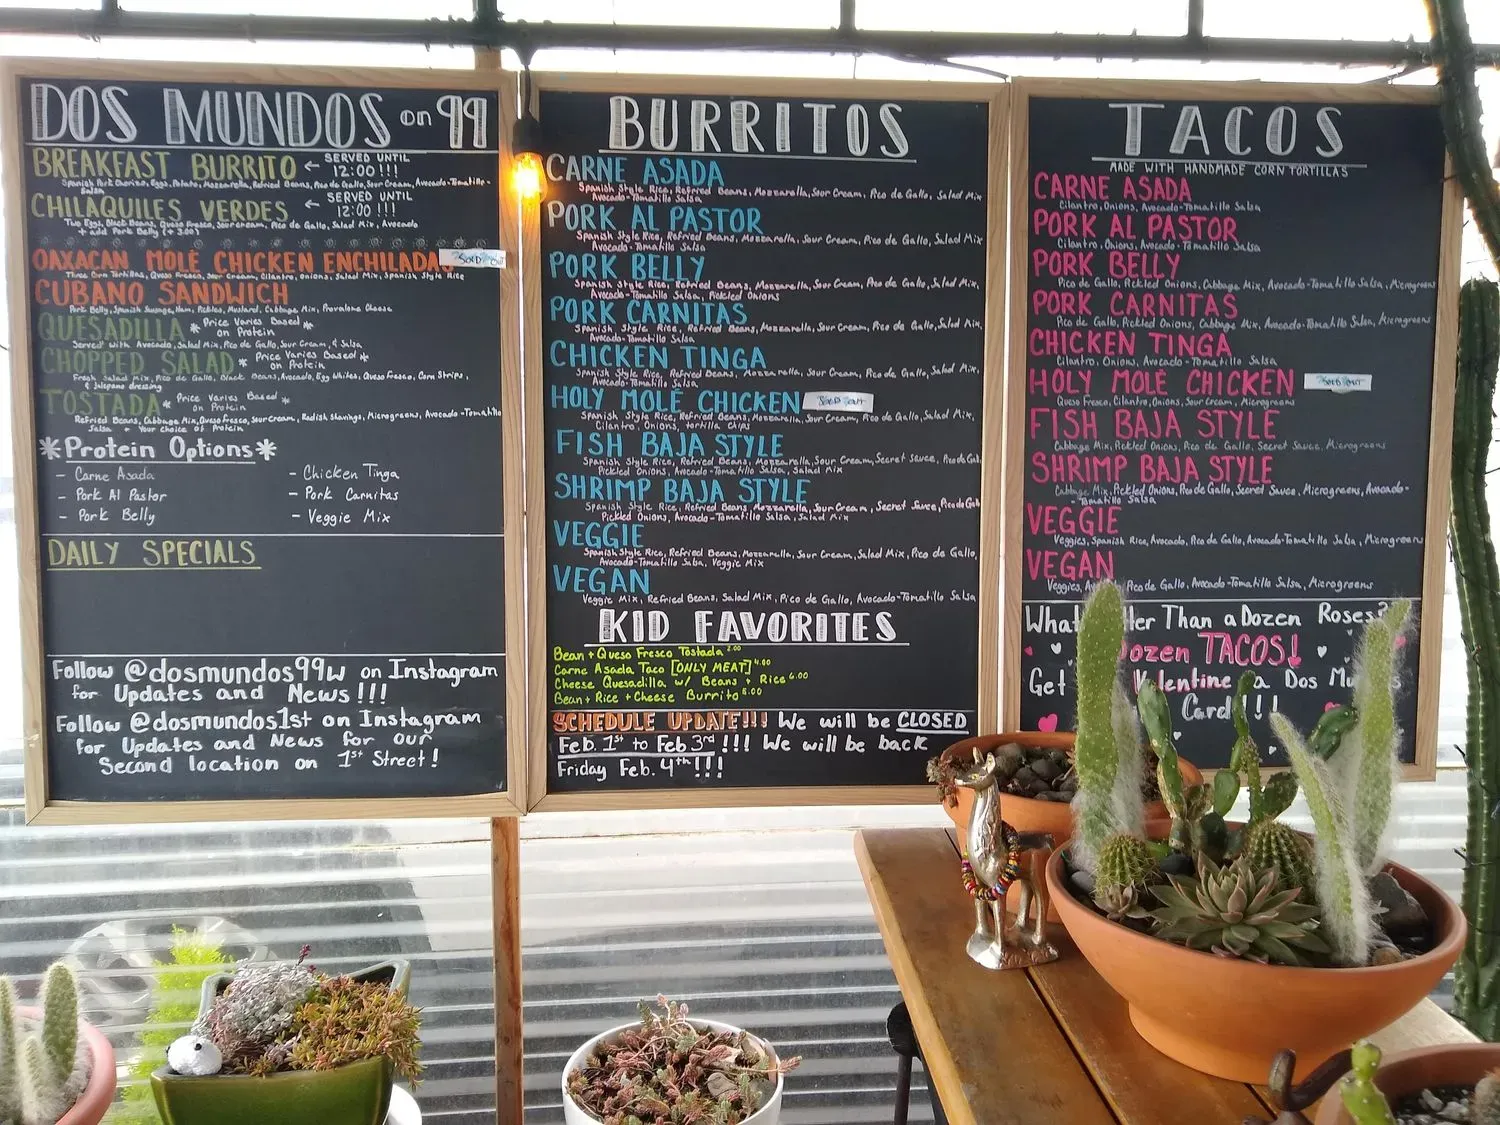 DOS MUNDOS on 99
BREAKFAST BURRITO ← SERVED UNTIL
12:00!!!
Spanish Pork Chorizo, Eggs, Potato, Mozzarella, Refried Beans, Pico de Gallo, Sour Cream, Avocado-Tomatillo-
Salsa
CHILAQUILES VERDES ← SERVED UNTIL
12:00!!!
Two Eggs, Black Beans, Queso Fresco, Sour cream, Pico de Gallo, Avocado
+ add Pork Belly (+ 3.00)
OAXACAN MOLÉ CHICKEN ENCHILADA
SOLD OUT
Three Corn Tortillas, Queso Fresco, Sour Cream, Cilantro, Onions, Salad Mix, Spanish Style Rice
CUBANO SANDWICH
Pork Belly, Spanish Sausage, Ham, Pickles, Mustard, Cabbage Mix, Provalone Cheese
QUESADILLA * Price Varies Based *
on Protein
Served with Avocado, Salad Mix, Pico de Gallo, Sour Cream, & Salsa
CHOPPED SALAD * Price Varies Based *
on Protein
Fresh Salad Mix, Pico de Gallo, Black Beans, Avocado, Egg Whites, Queso Fresco, Corn Strips,
& Jalepano dressing
TOSTADA * Price Varies Based *
on Protein
Refried Beans, Cabbage Mix, Queso Fresco, Sour Cream, Radish Shavings, Microgreens, Avocado-Tomatillo
Salsa + Your choice of Protein
*Protein Options*
- Carne Asada
- Pork Al Pastor
- Pork Belly
- Chicken Tinga
- Pork Carnitas
- Veggie Mix
DAILY SPECIALS
Follow @dosmundos99w on Instagram
for Updates and News!!!
Follow @dosmundos1st on Instagram
for Updates and News for our
Second location on 1st Street!
BURRITOS
CARNE ASADA
Spanish Style Rice, Refried Beans, Mozzarella, Sour Cream, Pico de Gallo, Salad Mix
Avocado-Tomatillo Salsa
PORK AL PASTOR
Spanish Style Rice, Refried Beans, Mozzarella, Sour Cream, Pico de Gallo, Salad Mix
Avocado-Tomatillo Salsa
PORK BELLY
Spanish Style Rice, Refried Beans, Mozzarella, Sour Cream, Pico de Gallo, Salad Mix,
Avocado-Tomatillo Salsa, Pickled Onions
PORK CARNITAS
Spanish Style Rice, Refried Beans, Mozzarella, Sour Cream, Pico de Gallo, Salad Mix,
Avocado-Tomatillo Salsa
CHICKEN TINGA
Spanish Style Rice, Refried Beans, Mozzarella, Sour Cream, Pico de Gallo, Salad Mix,
Avocado-Tomatillo Salsa
HOLY MOLÉ CHICKEN SOLD OUT
Spanish Style Rice, Refried Beans, Mozzarella, Sour Cream, Pico de Gallo, Salad Mix,
Cilantro, Onions, tortilla chips
FISH BAJA STYLE
Spanish Style Rice, Refried Beans, Mozzarella, Sour Cream, Secret Sauce, Pico de Gallo
Pickled Onions, Avocado-Tomatillo Salsa, Salad Mix
SHRIMP BAJA STYLE
Spanish Style Rice, Refried Beans, Mozzarella, Sour Cream, Secret Sauce, Pico de Gallo
Pickled Onions, Avocado-Tomatillo Salsa, Salad Mix
VEGGIE
Spanish Style Rice, Refried Beans, Mozzarella, Sour Cream, Salad Mix, Pico de Gallo,
Avocado-Tomatillo Salsa, Veggie Mix
VEGAN
Veggie Mix, Refried Beans, Salad Mix, Pico de Gallo, Avocado-Tomatillo Salsa
KID FAVORITES
Bean + Queso Fresco Tostada 2.00
Carne Asada Taco [ONLY MEAT] 4.00
Cheese Quesadilla w/ Beans + Rice 6.00
Bean + Rice + Cheese Burrito 5.00
SCHEDULE UPDATE!!! We will be CLOSED
Feb. 1st to Feb 3rd!!! We will be back
Friday Feb. 4th!!!
TACOS
MADE WITH HANDMADE CORN TORTILLAS
CARNE ASADA
Cilantro, Onions, Avocado-Tomatillo Salsa
PORK AL PASTOR
Cilantro, Onions, Avocado-Tomatillo Salsa
PORK BELLY
Pico de Gallo, Pickled Onions, Cabbage Mix, Avocado-Tomatillo Salsa, Microgreens
PORK CARNITAS
Pico de Gallo, Pickled Onions, Cabbage Mix, Avocado-Tomatillo Salsa, Microgreens
CHICKEN TINGA
Cilantro, Onions, Avocado-Tomatillo Salsa
HOLY MOLÉ CHICKEN SOLD OUT
Queso Fresco, Cilantro, Onions, Sour Cream, Microgreens
FISH BAJA STYLE
Cabbage Mix, Pickled Onions, Pico de Gallo, Secret Sauce, Microgreens
SHRIMP BAJA STYLE
Cabbage Mix, Pickled Onions, Pico de Gallo, Secret Sauce, Microgreens, Avocado-
Tomatillo Salsa
VEGGIE
Veggies, Spanish Rice, Avocado, Pico de Gallo, Avocado-Tomatillo Salsa, Microgreens
VEGAN
Veggies, Pico de Gallo, Avocado-Tomatillo Salsa, Microgreens
What Than a Dozen Roses?
Dozen TACOS!
Get Valentine a Dos
Card!!!